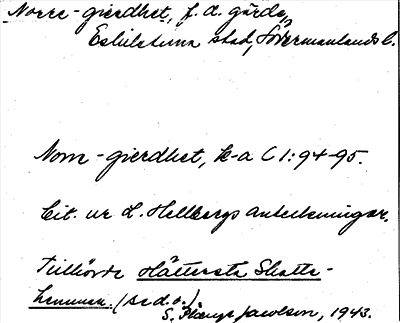 Norre-gierdhet, f. d. gärde,
Eskilstuna stad, Södermanlands l.
Norre-gierdhet, k-a C 1: 94-95.
Cit. ur L. Hellbergs anteckningar.
Tillhörde Hättersta Skatte-
hemman. (se d. o.)
S. Jacobson, 1943.